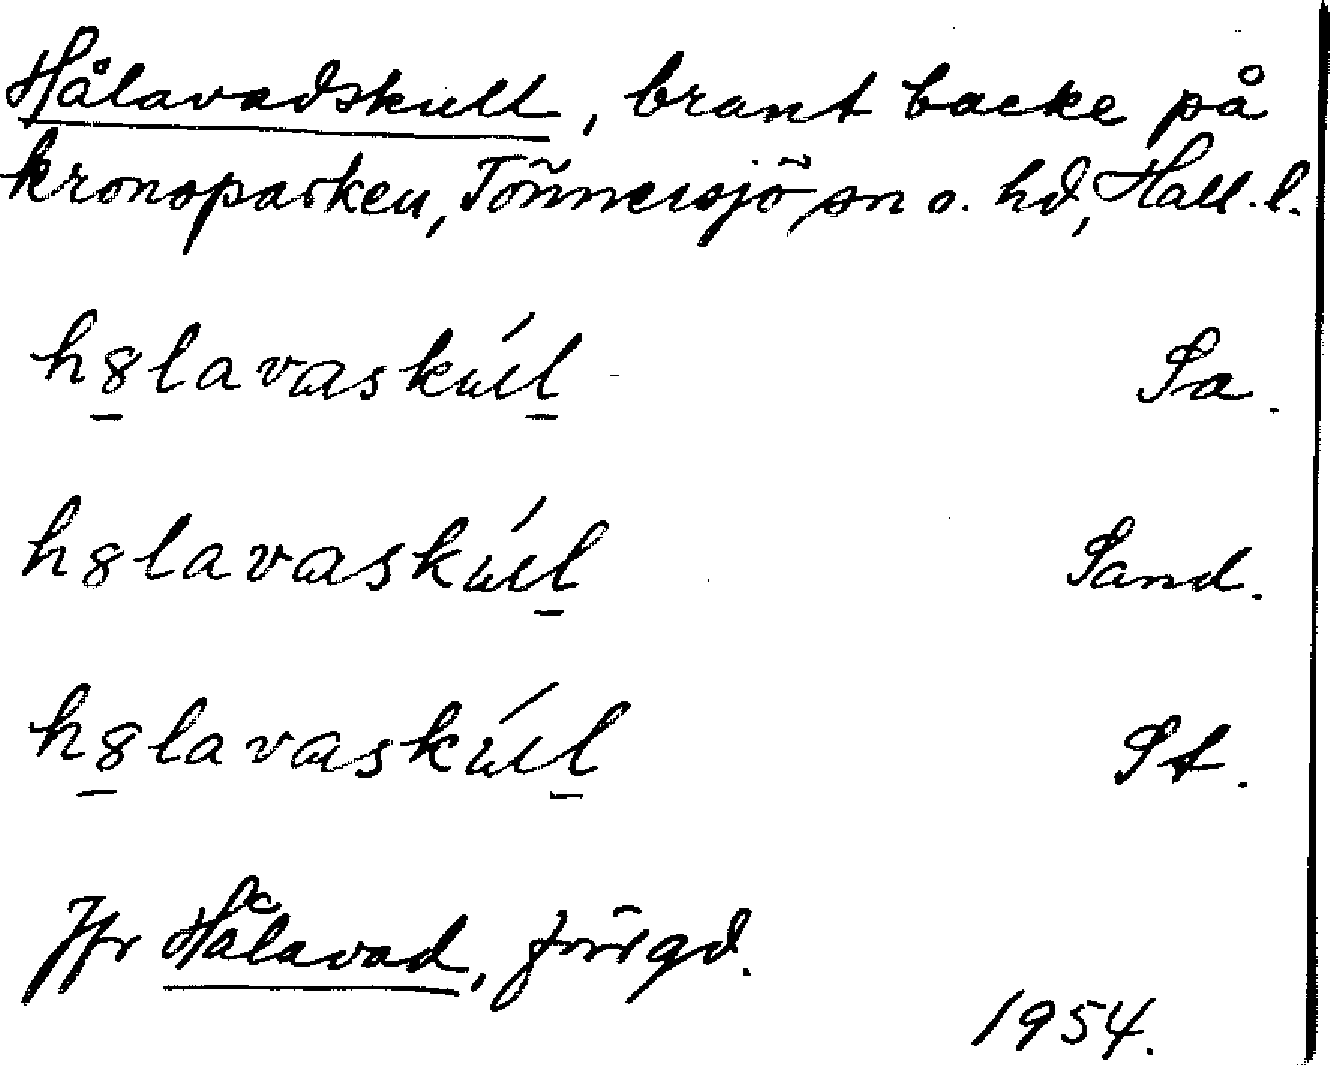 Hålavadskull, brant backe på
kronoparken, Tönnersjö sn o. hd, Hall. l.
h8lavaskúll Sa.
h8lavaskúll Sand.
h8lavaskúll St.
Jfr Hålavad, förgd.
1954.